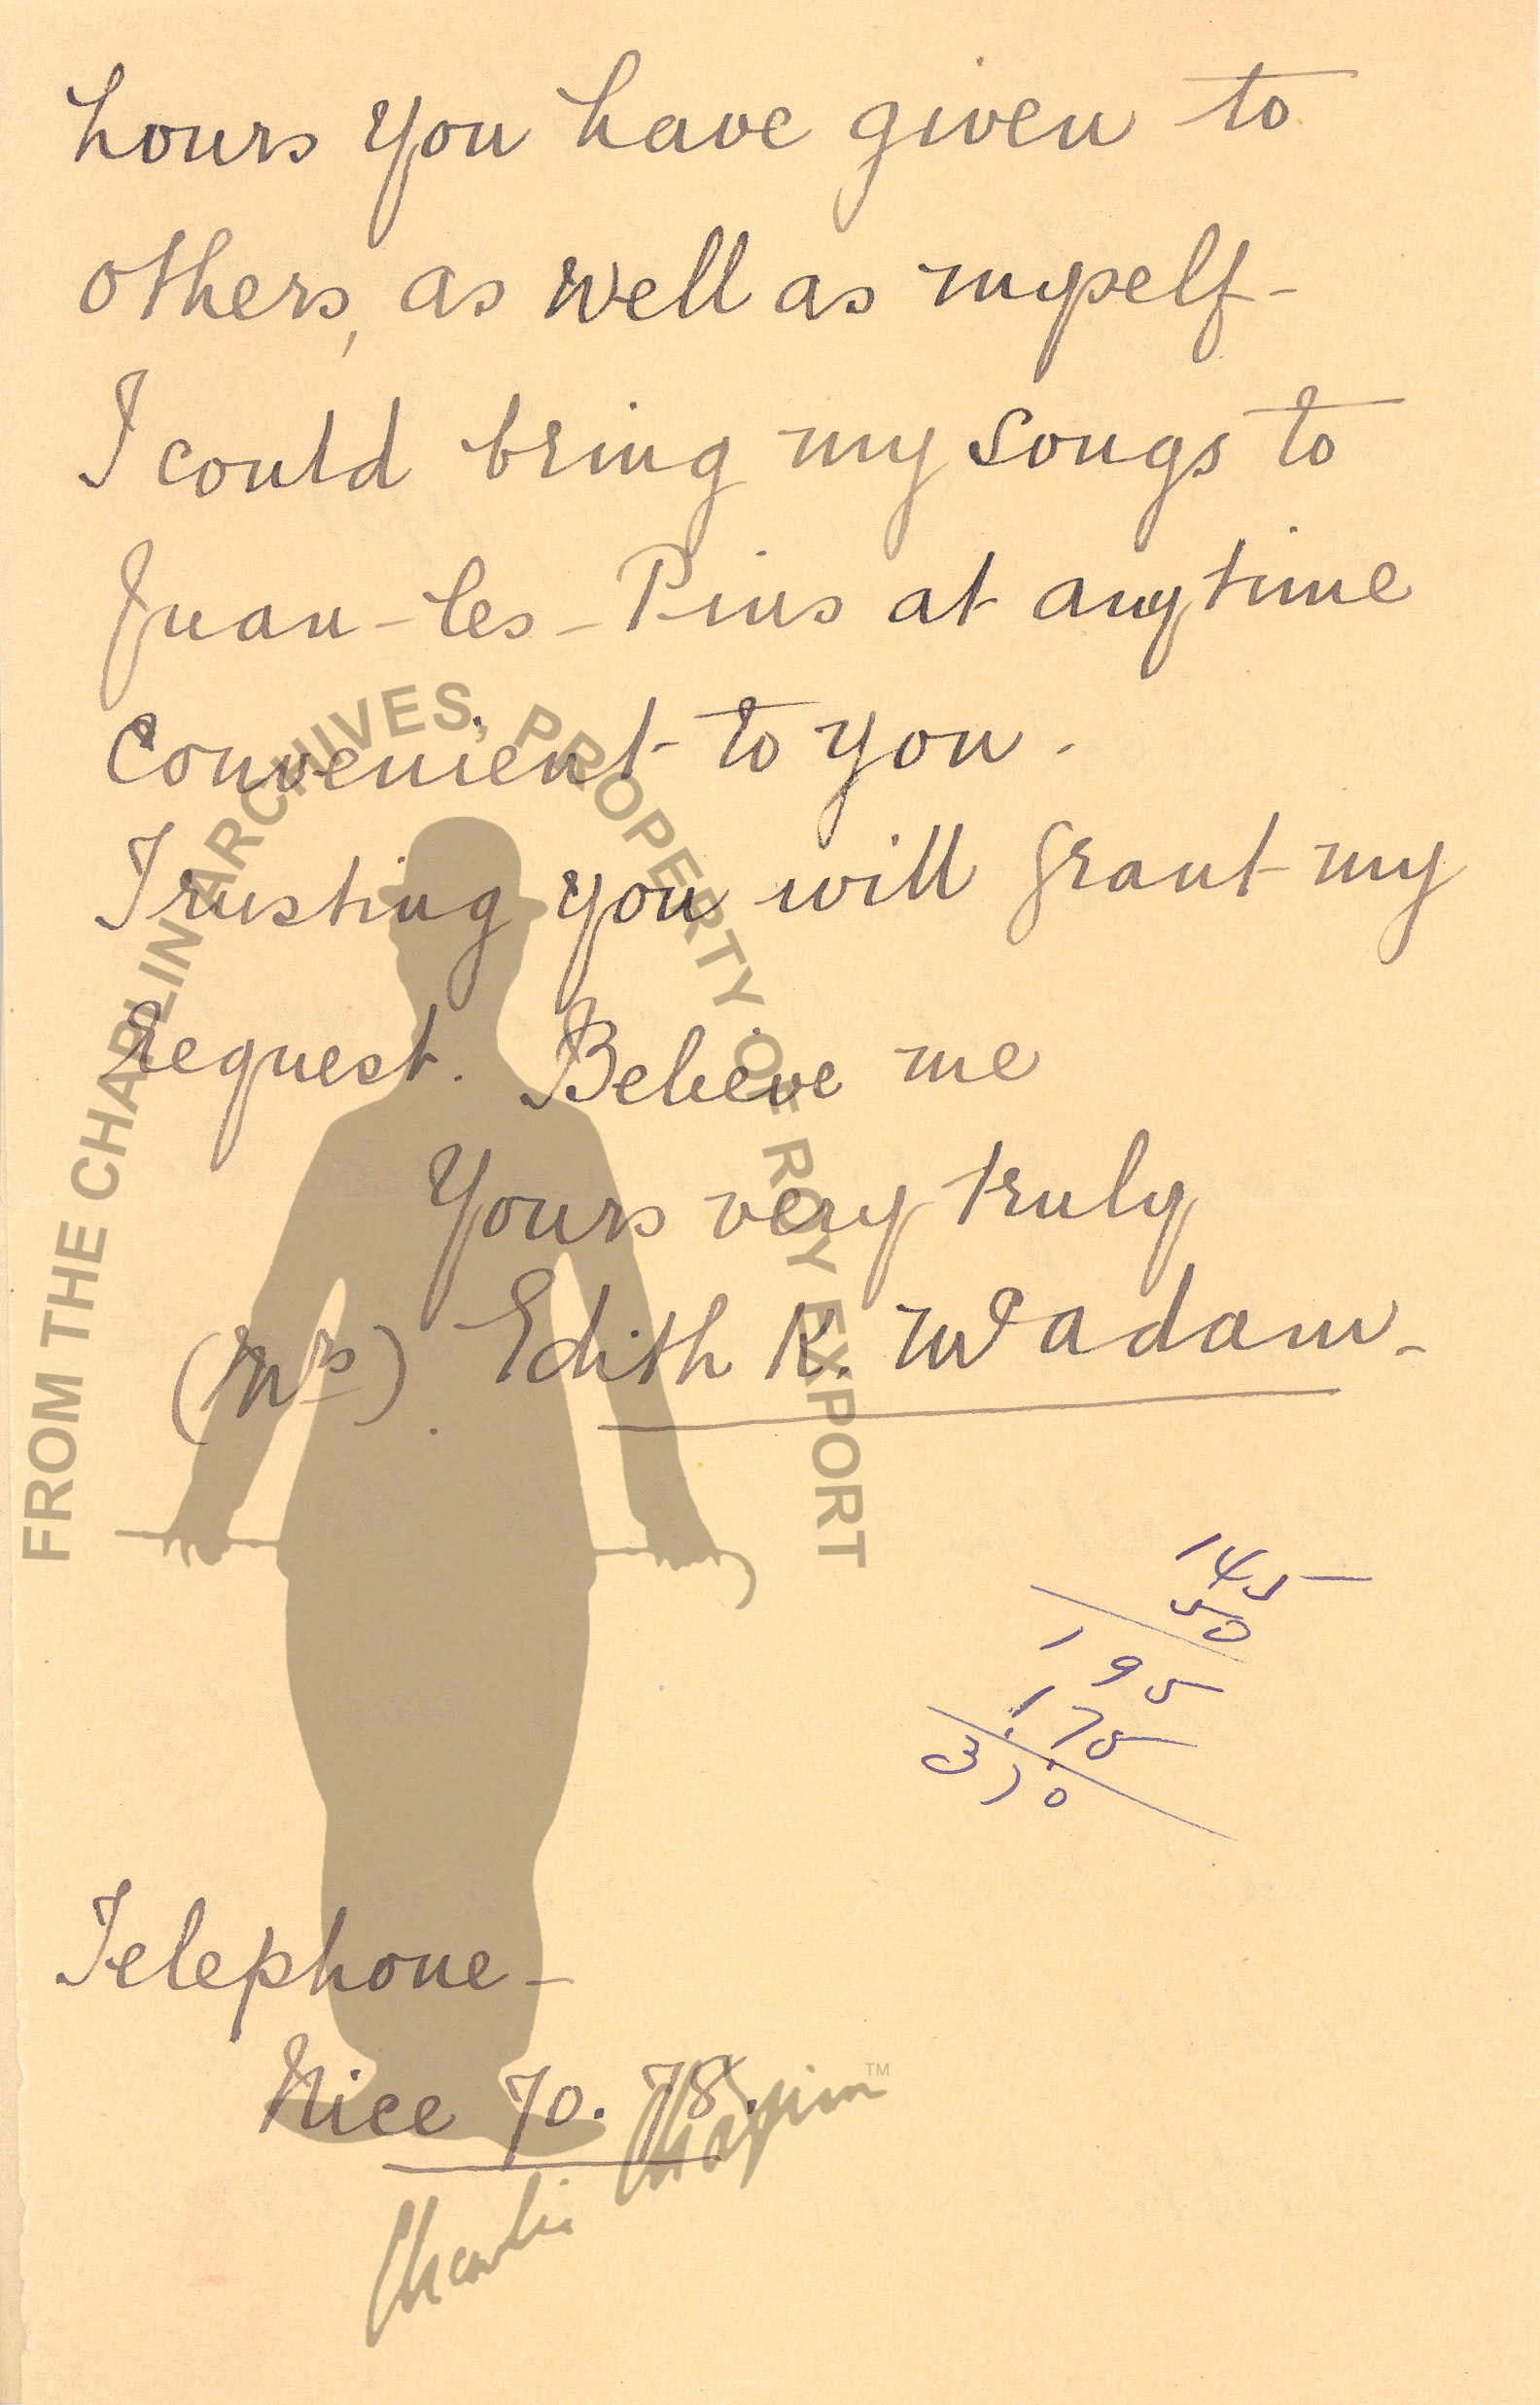 hours you have given to
others, as well as myself -
I could bring my songs to
Juan-les-Pins at anytime
convenient to you.
Trusting you will grant my
request. Believe me
Yours very truly
(Mrs) Edith K. McAdam.
145
50
195
175
370
Telephone -
Nice 70.78.
FROM THE CHAPLIN ARCHIVES, PROPERTY OF ROY EXPORT
Charlie Chaplin™